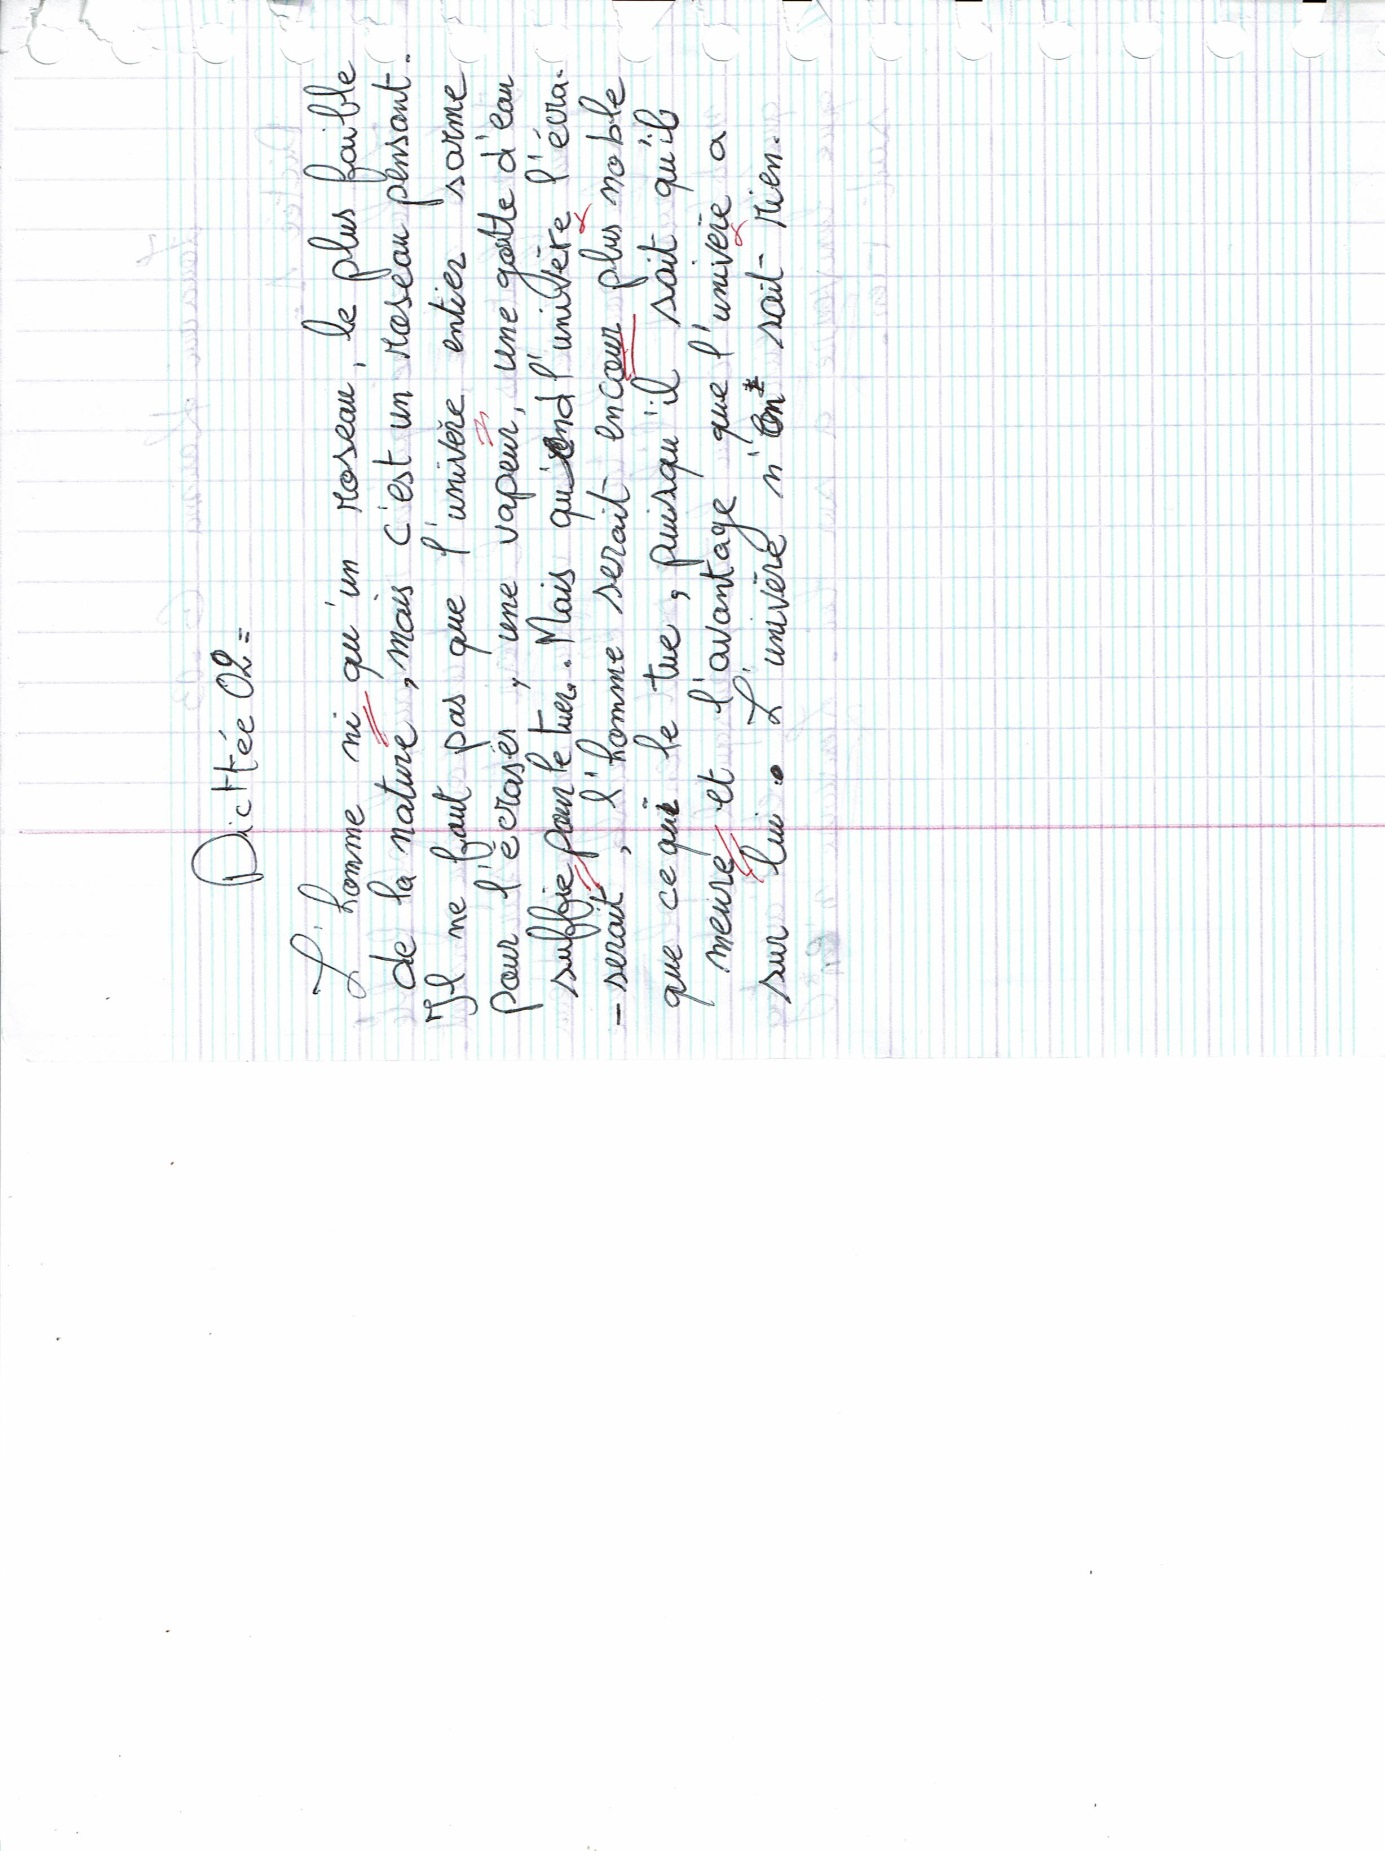 Dicttée 02=
L'homme ni qu'un roseau, le plus faible
de la nature, mais c'est un roseau pensant.
Il ne faut pas que l'univère entier sarme
pour l'écraser, une vapeur, une goutte d'eau
suffie pour le tuer. Mais quand l'univère l'écra-
-serait, l'homme serait encour plus noble
que ce qui le tue, puisqu'il sait qu'il
meure et l'avantage que l'univère a
sur lui. L'univère n'en sait rien.